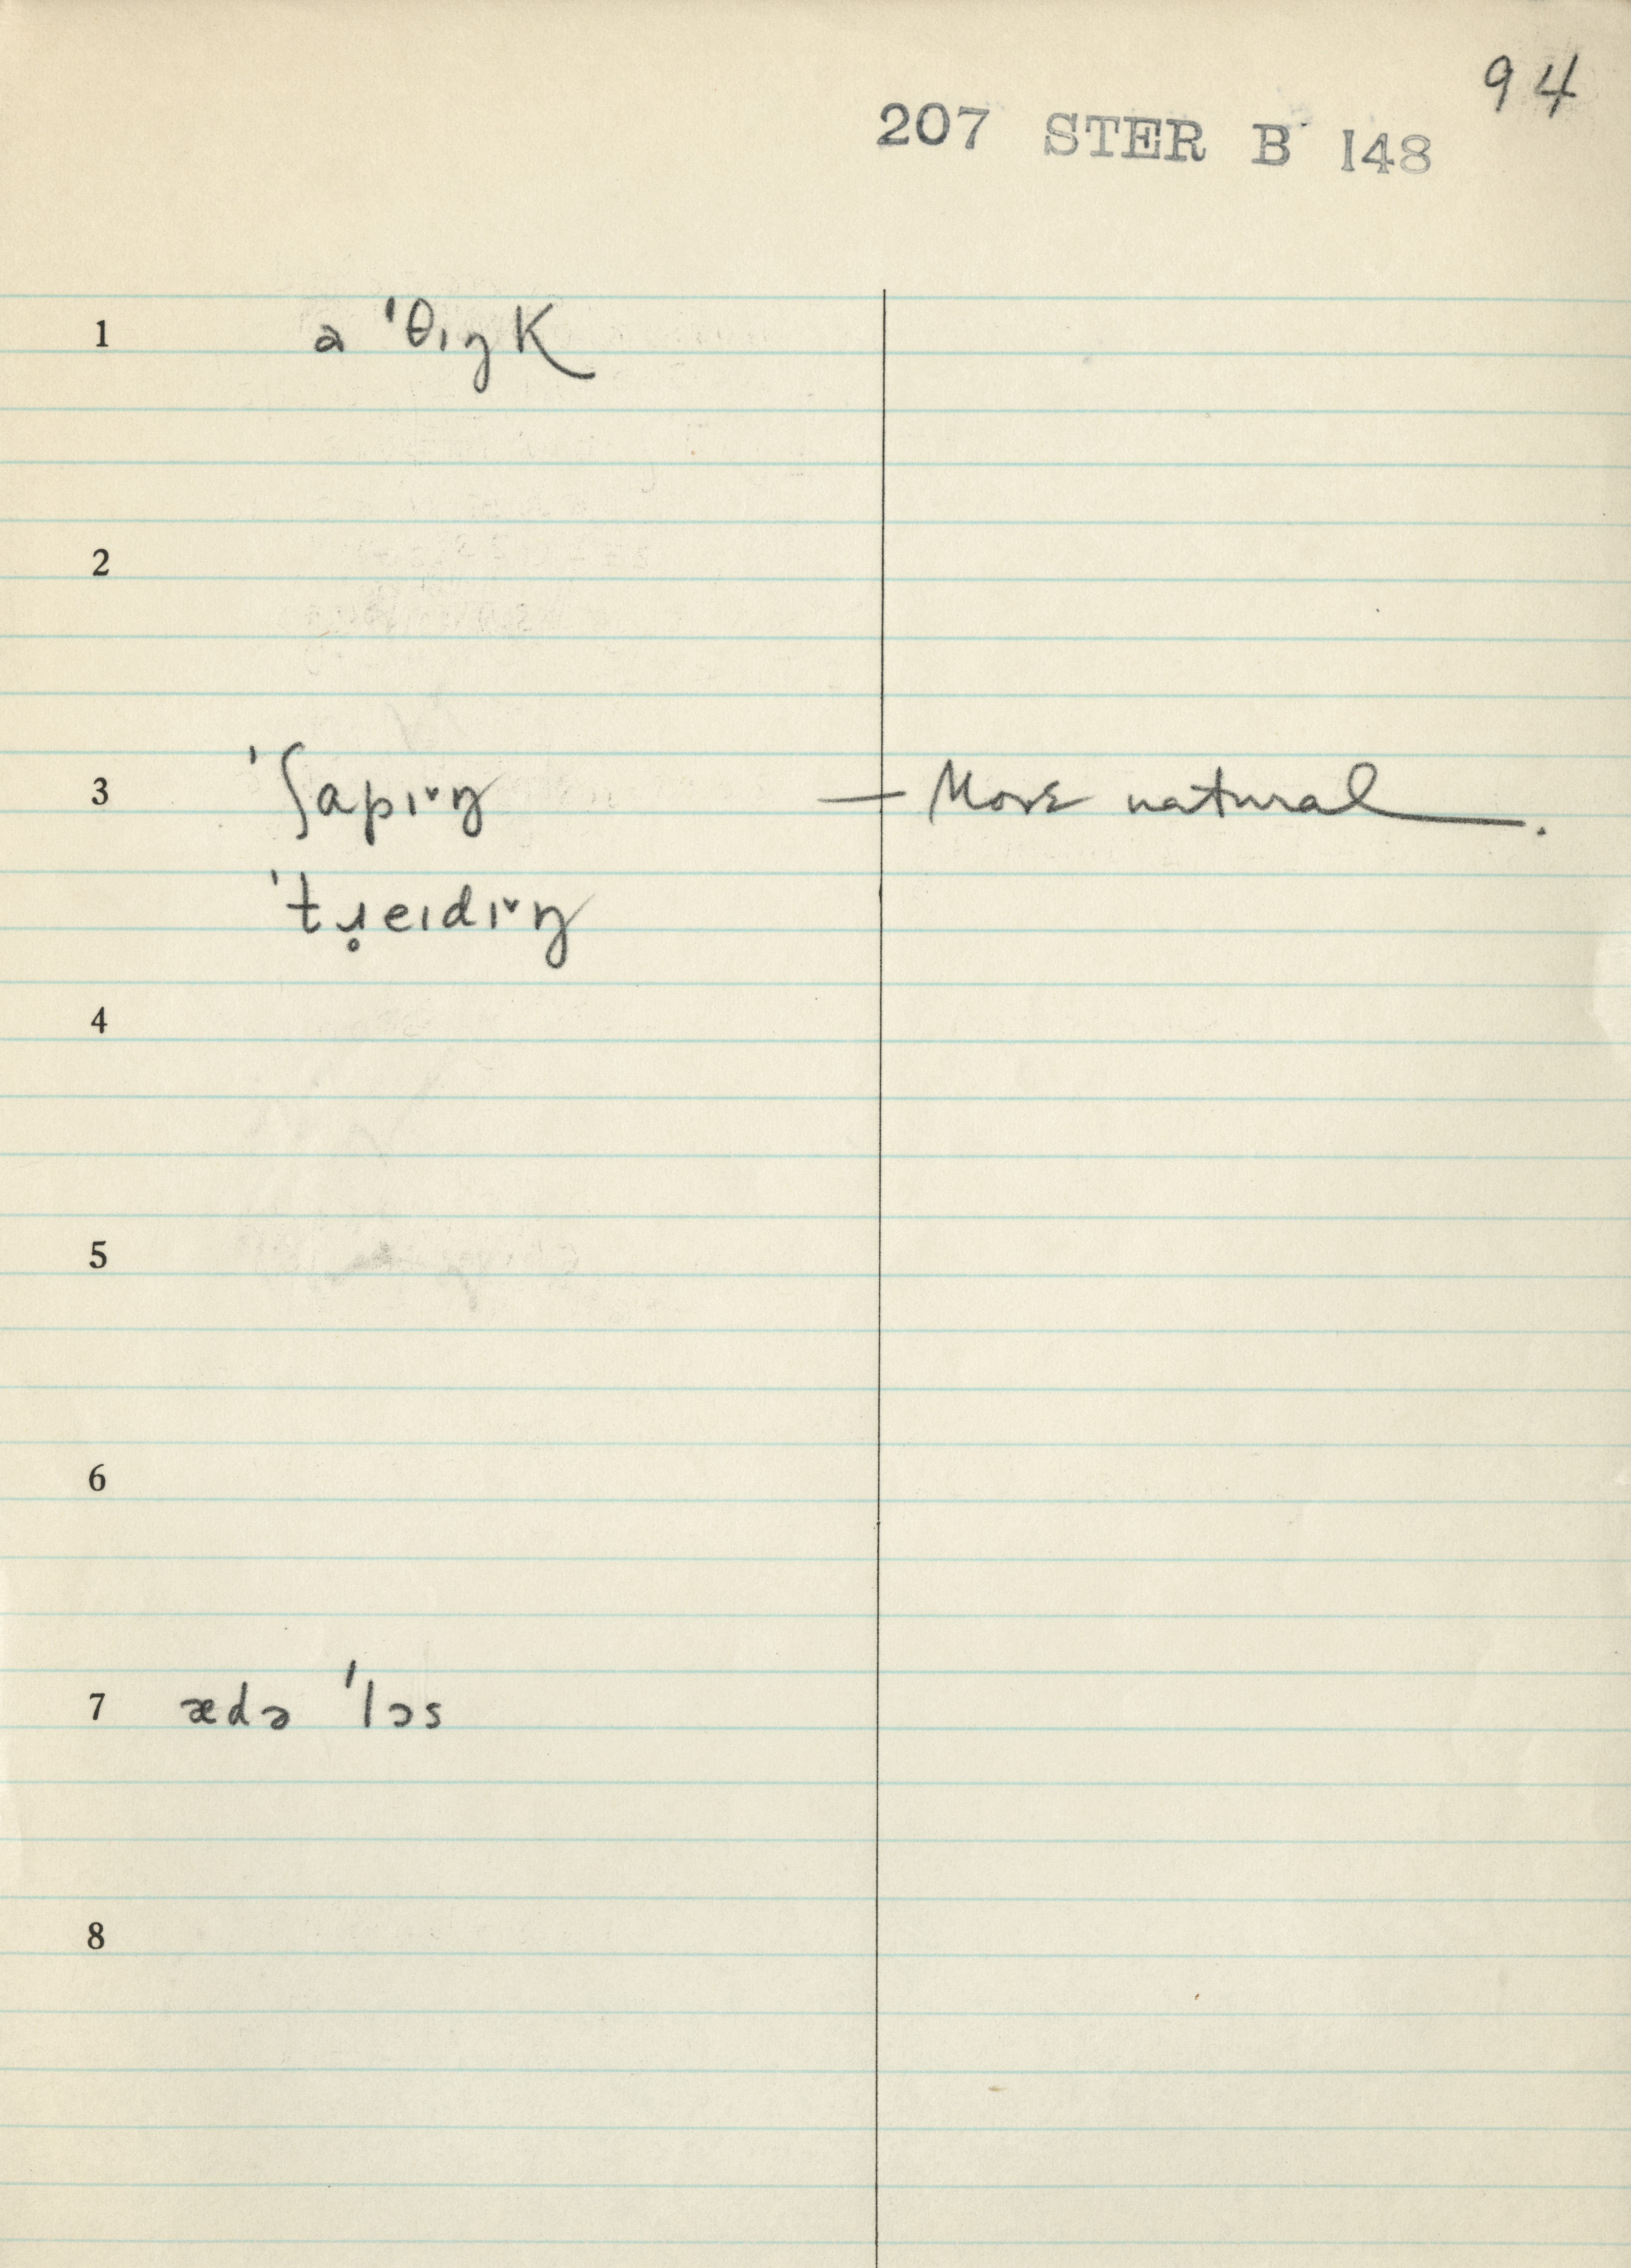 94
207 STER B 148
1 a ˈθɪŋk
2
3 ˈʃapɪ˅ŋ — More natural.
ˈtɹ̥eɪdɪ˅ŋ
4
5
6
7 ædə ˈlɔs
8